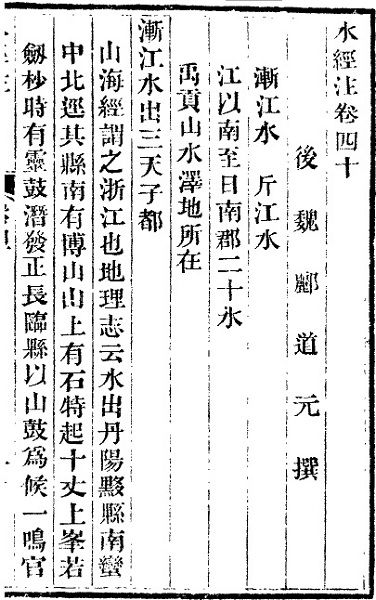 水經注卷四十
後魏酈道元撰
漸江水 斤江水
江以南至日南郡二十水
禹貢山水澤地所在
漸江水出三天子都
山海經謂之浙江也地理志云水出丹陽黟縣南蠻
中北逕其縣南有博山山上有石特起十丈上峯若
劒杪時有靈鼓潛發正長臨縣以山鼓爲候一鳴官